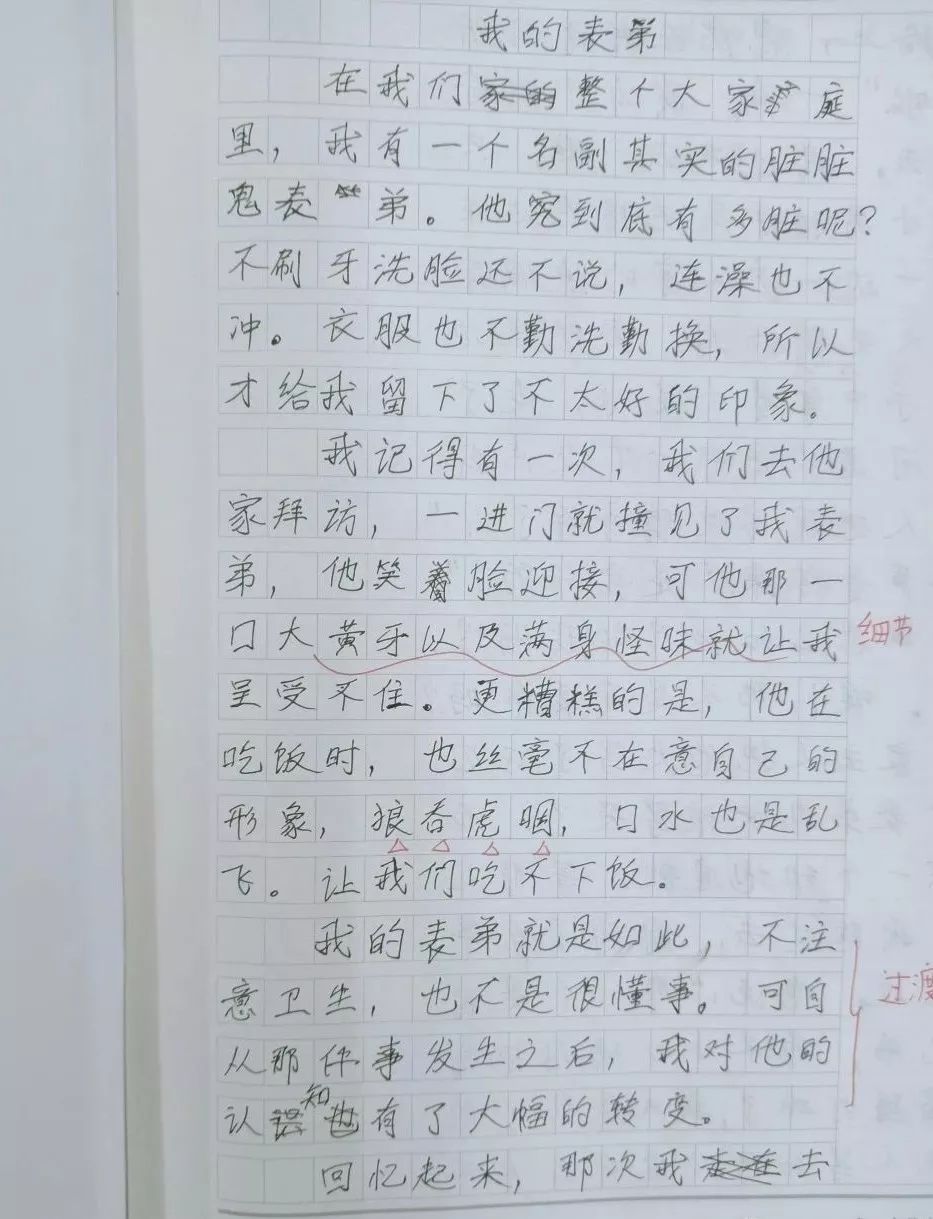 我的表弟
在我们整个大家庭
里，我有一个名副其实的脏脏
鬼表弟。他究到底有多脏呢？
不刷牙洗脸还不说，连澡也不
冲。衣服也不勤洗勤换，所以
才给我留下了不太好的印象。
我记得有一次，我们去他
家拜访，一进门就撞见了我表
弟，他笑着脸迎接，可他那一
口大黄牙以及满身怪味就让我 细节
呈受不住。更糟糕的是，他在
吃饭时，也丝毫不在意自己的
形象，狼吞虎咽，口水也是乱
飞。让我们吃不下饭。
我的表弟就是如此，不注
意卫生，也不是很懂事。可自 过渡
从那件事发生之后，我对他的
认知也有了大幅的转变。
回忆起来，那次我去